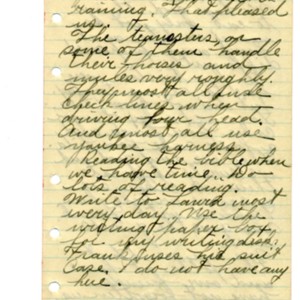 training. That pleased
us.
The teamsters or
some of them handle
their horses and
mules very roughly.
They most all use
check lines when
driving four head.
And most all use
yankee harness.
Reading the bible when
we have time. Do
lots of reading.
Write to Laura most
every day. Use the
writing paper box
for my writing desk.
Frank uses his suit
case. I do not have any
here.